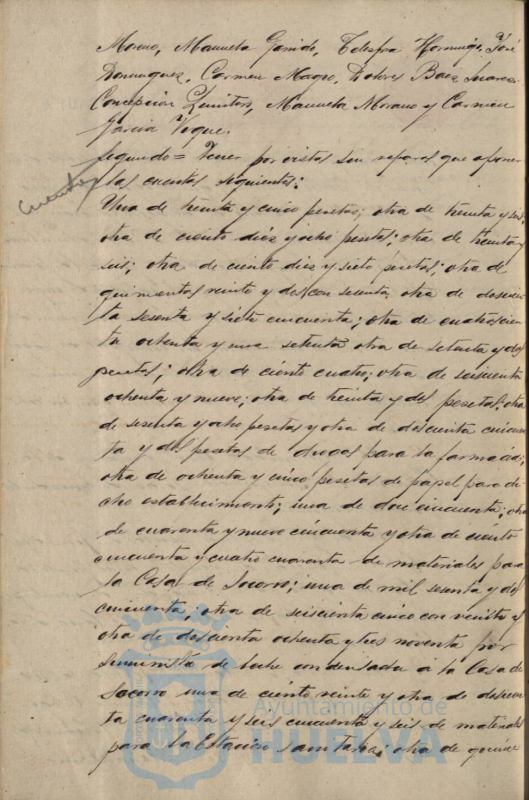 Moreno, Manuela Garrido, Telesfra Hormigo, José
Domínguez, Carmen Magro, Dolores Baez Suarez
Concepcion Quintero, Manuela Morano y Carmen
Garcia Voque.
Segundo = Tener por vistas sin reparos que oponer
las cuentas siguientes:
Cuentas
Una de treinta y cinco pesetas; otra de treinta y seis,
otra de ciento diez y ocho pesetas; otra de treinta y
seis; otra de ciento diez y siete pesetas; otra de
quinientas veinte y dos con sesenta, otra de doscien
ta sesenta y siete cincuenta; otra de cuatrocien
ta ochenta y una setenta otra de setenta y dos
pesetas; otra de ciento cuatro; otra de seiscienta
ochenta y nueve; otra de treinta y dos pesetas; otra
de sesenta y ocho pesetas y otra de doscienta cincuen
ta y dos pesetas de drogas para la farmacia;
otra de ochenta y cinco pesetas de papel para di
cho establecimiento; una de doce cincuenta; otra
de cuarenta y nueve cincuenta y otra de ciento
cincuenta y cuatro cuarenta de materiales para
la Casa de Socorro; una de mil sesenta y dos
cincuenta; otra de seiscienta cinco con veinte y
otra de doscienta ochenta y tres noventa por
suministro de leche condensada á la Casa de
Socorro una de ciento veinte y otra de doscien
ta cuarenta y seis cincuenta y seis de materiales
para la Estacion Sanitaria; otra de quince
Ayuntamiento de
HUELVA